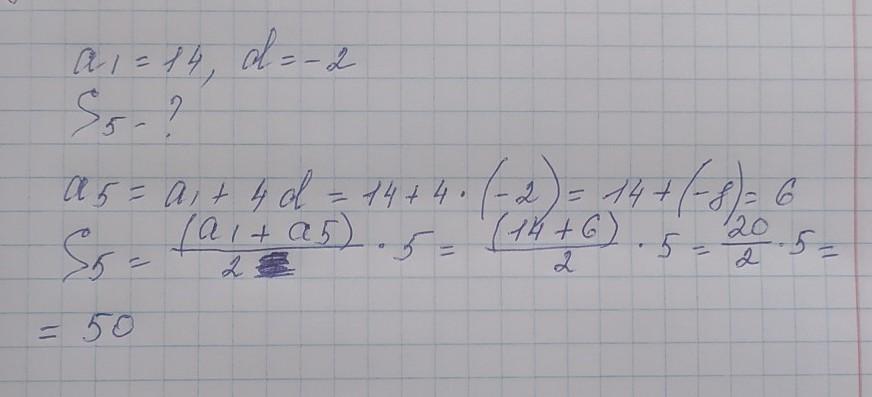 a₁ = 14, d = -2
S₅ - ?
a₅ = a₁ + 4d = 14 + 4 · (-2) = 14 + (-8) = 6
S₅ = (a₁ + a₅)/2 · 5 = (14 + 6)/2 · 5 = 20/2 · 5 =
= 50